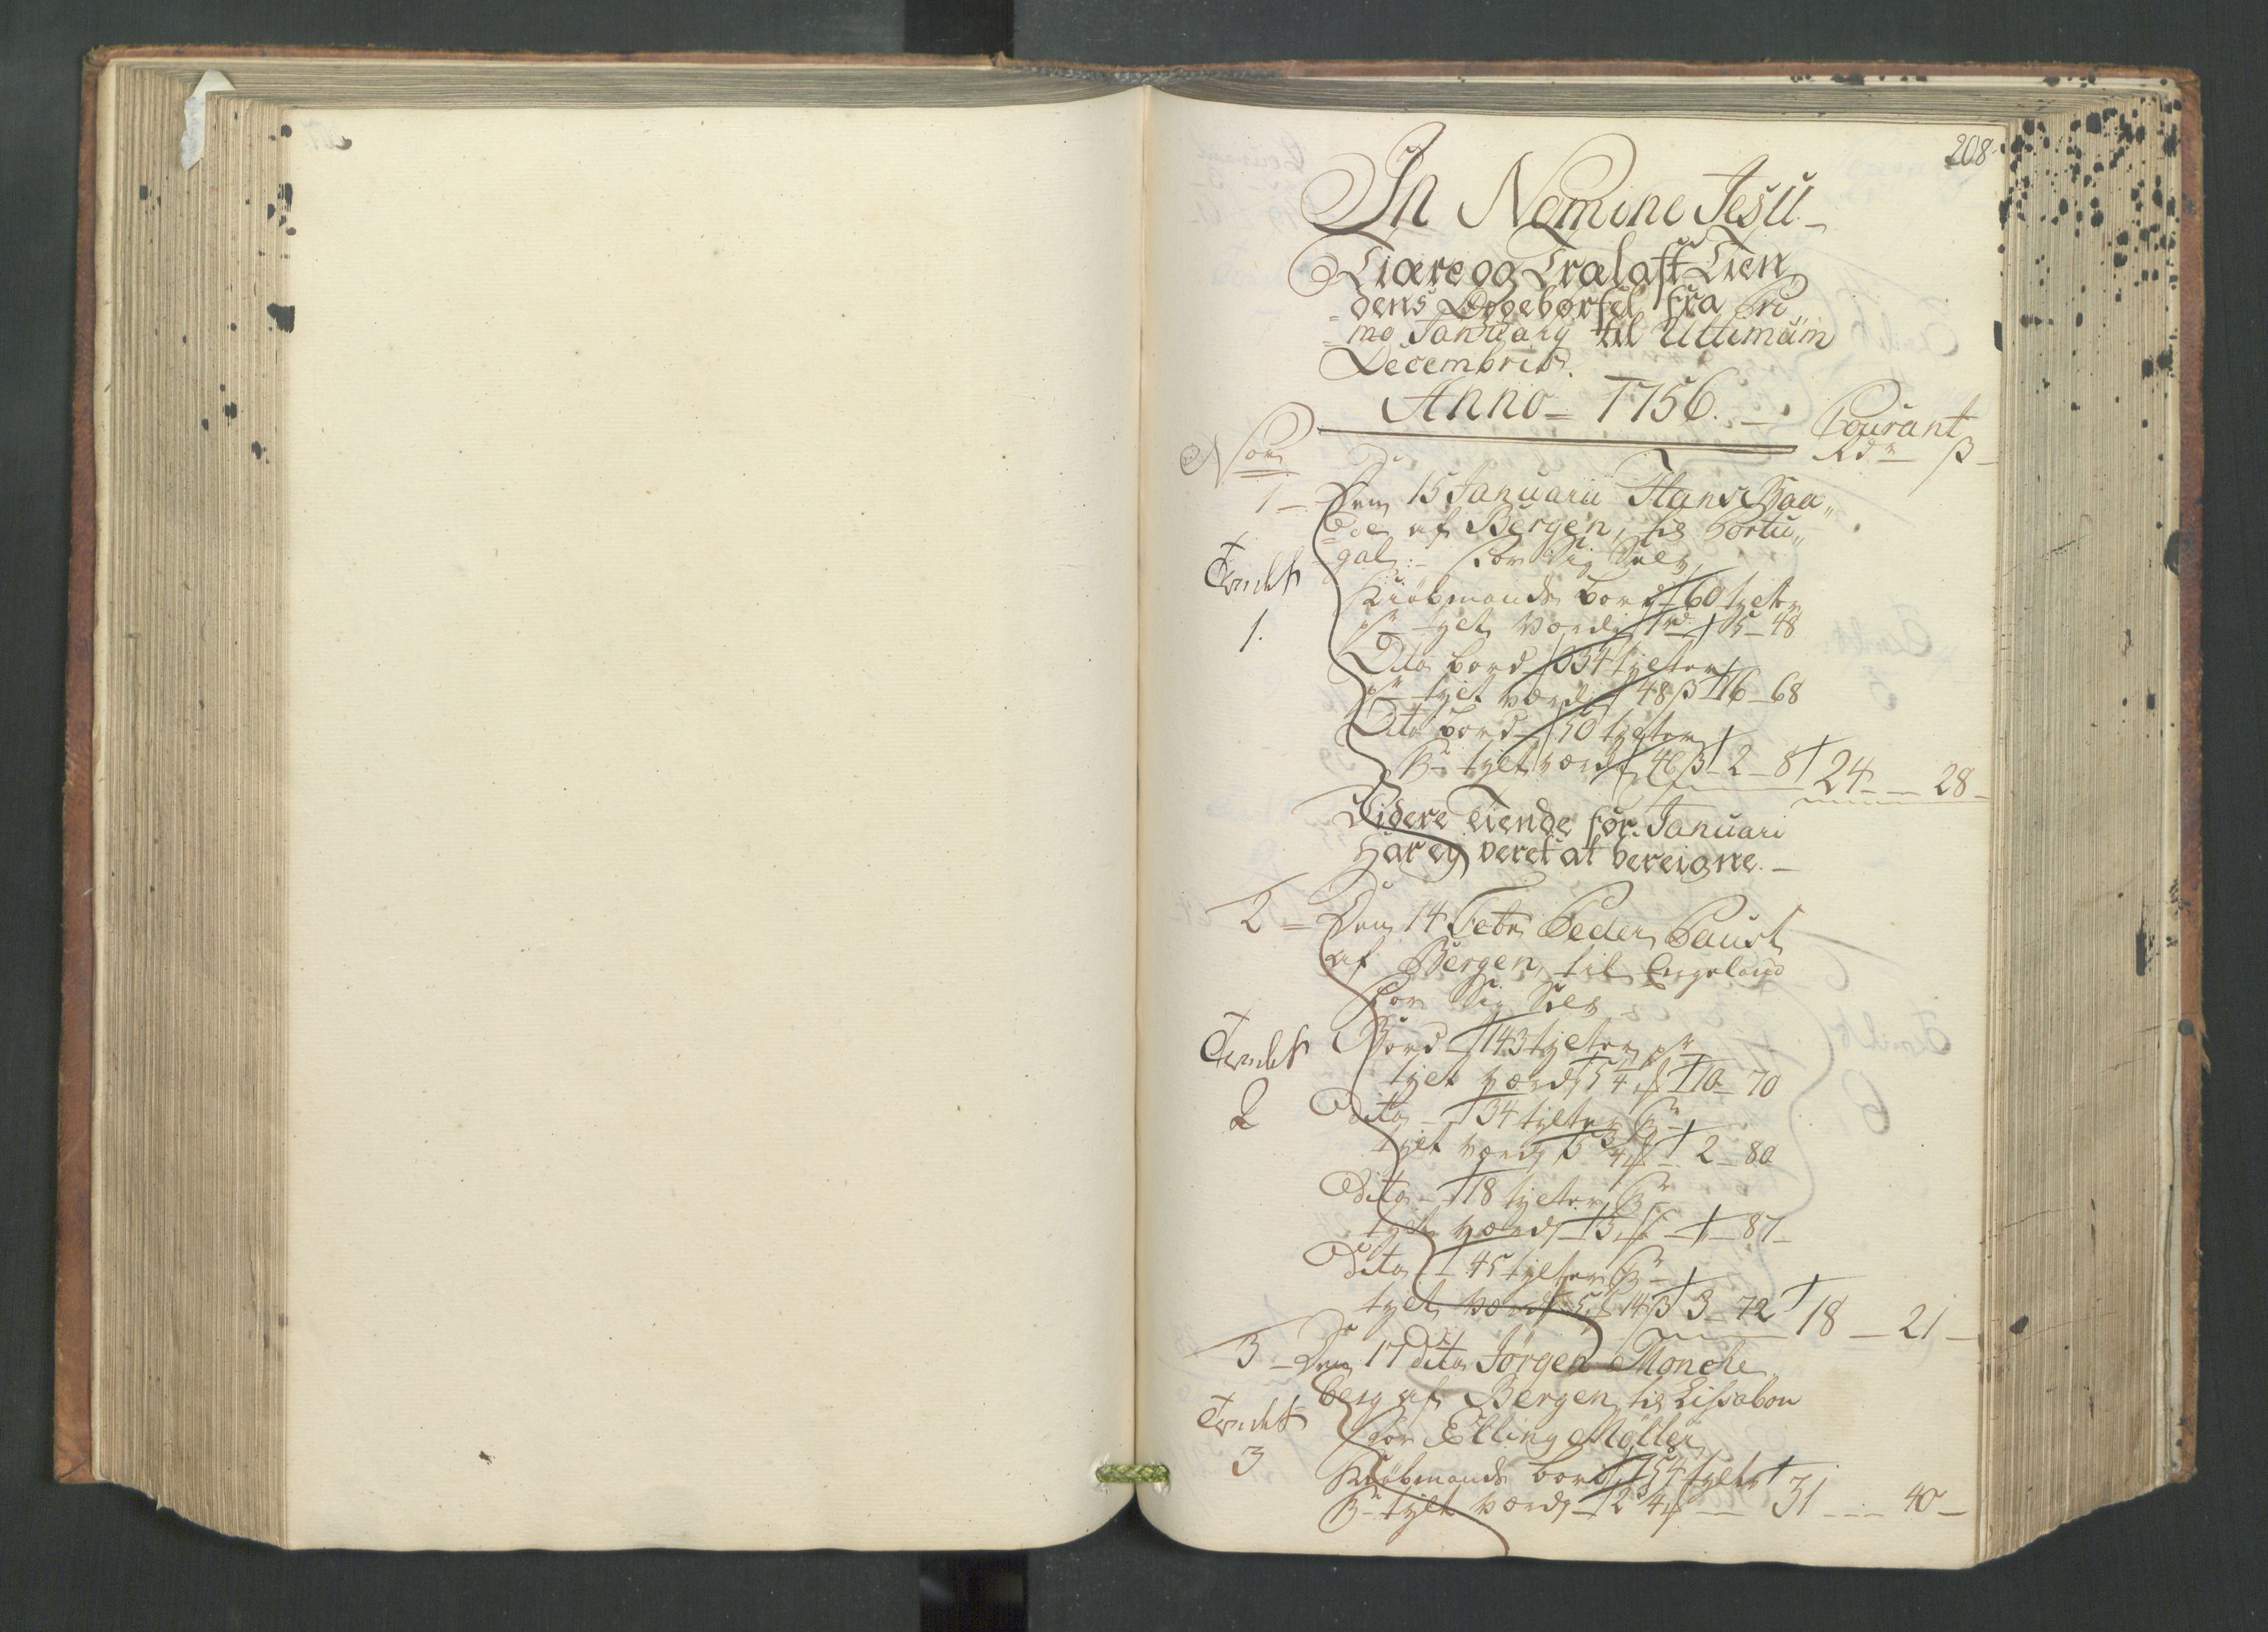 208
In Nomine Jesu
Tiære og Trælast Tien
dens Oppebørsel fra Pri
mo January til Ultimum
Decembris.
Anno 1756.
Courant
Rdr ß
No
1 Den 15 Januarii Hans
af Bergen, til Portu„
gal: for Sig Selv
Tendt
1.
Kiøbmands bord 60 tylter
pr tylt værdi 1 rd 5 48
Dito bord 334 tylter
pr tylt værdi 48 ß 16 68
Dito bord 50 tylter
pr tylt værdi 46 ß 2 8 24 28
Videre Tiende for Januari
Har ey veret at bereigne.
2 Den 14 Febr Peder Paust
af Bergen, til Engeland
for Sig Selv
Tendt
2
Bord 143 tylter pr
tylt værdi 10 70
Dito 34 tylter pr
tylt værdi 2 80
Dito 18 tylter pr
tylt værdi 87
Dito 45 tylter pr
tylt værdi 14 ß 3 72 18 21
3 Den 17 dito Jørgen Monche
berg af Bergen til Lissabon
for Elling Møller
Tendt
3
Kiøbmands bord 154 tylter
pr tylt værdi 31 40